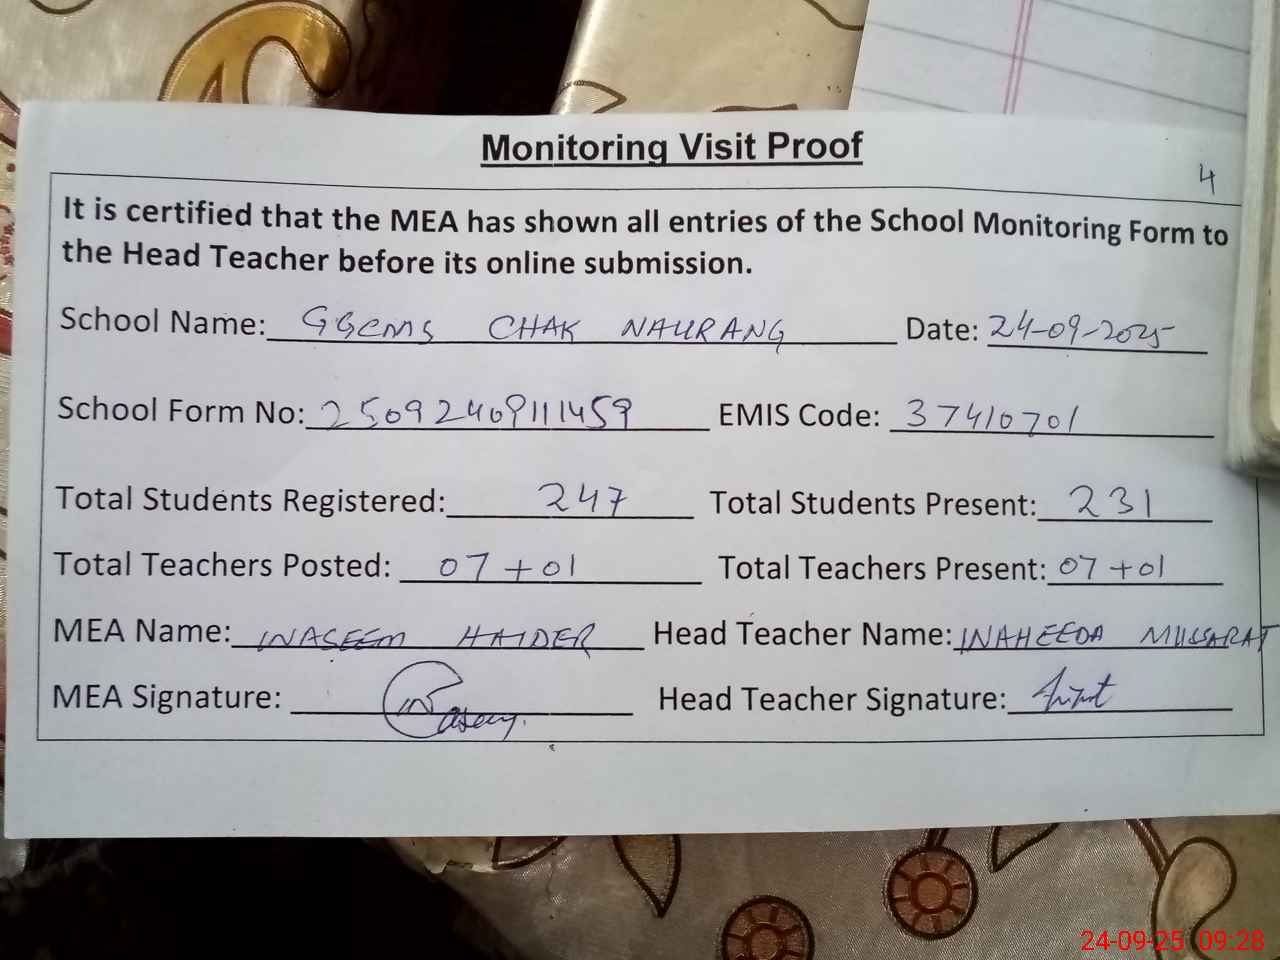 Monitoring Visit Proof
4
It is certified that the MEA has shown all entries of the School Monitoring Form to
the Head Teacher before its online submission.
School Name: GGCMS CHAK NAURANG Date: 24-09-2025
School Form No: 25092409111459 EMIS Code: 37410701
Total Students Registered: 247 Total Students Present: 231
Total Teachers Posted: 07+01 Total Teachers Present: 07+01
MEA Name: WASEEM HAIDER Head Teacher Name: WAHEEDA MUSSARAT
MEA Signature: Head Teacher Signature:
24-09-25 09:28